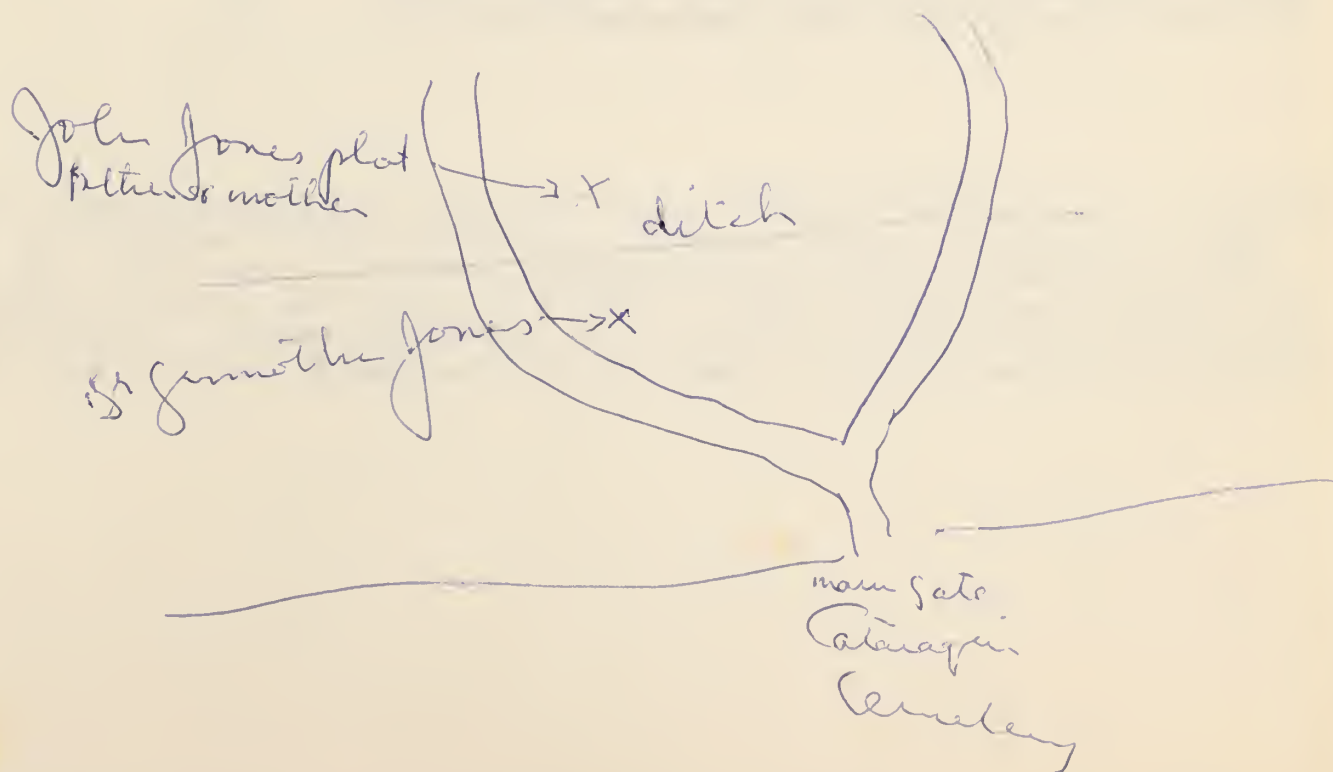 John Jones plot
father & mother
x
ditch
gr grmother Jones
x
main gate
Cataraqui
Cemetery